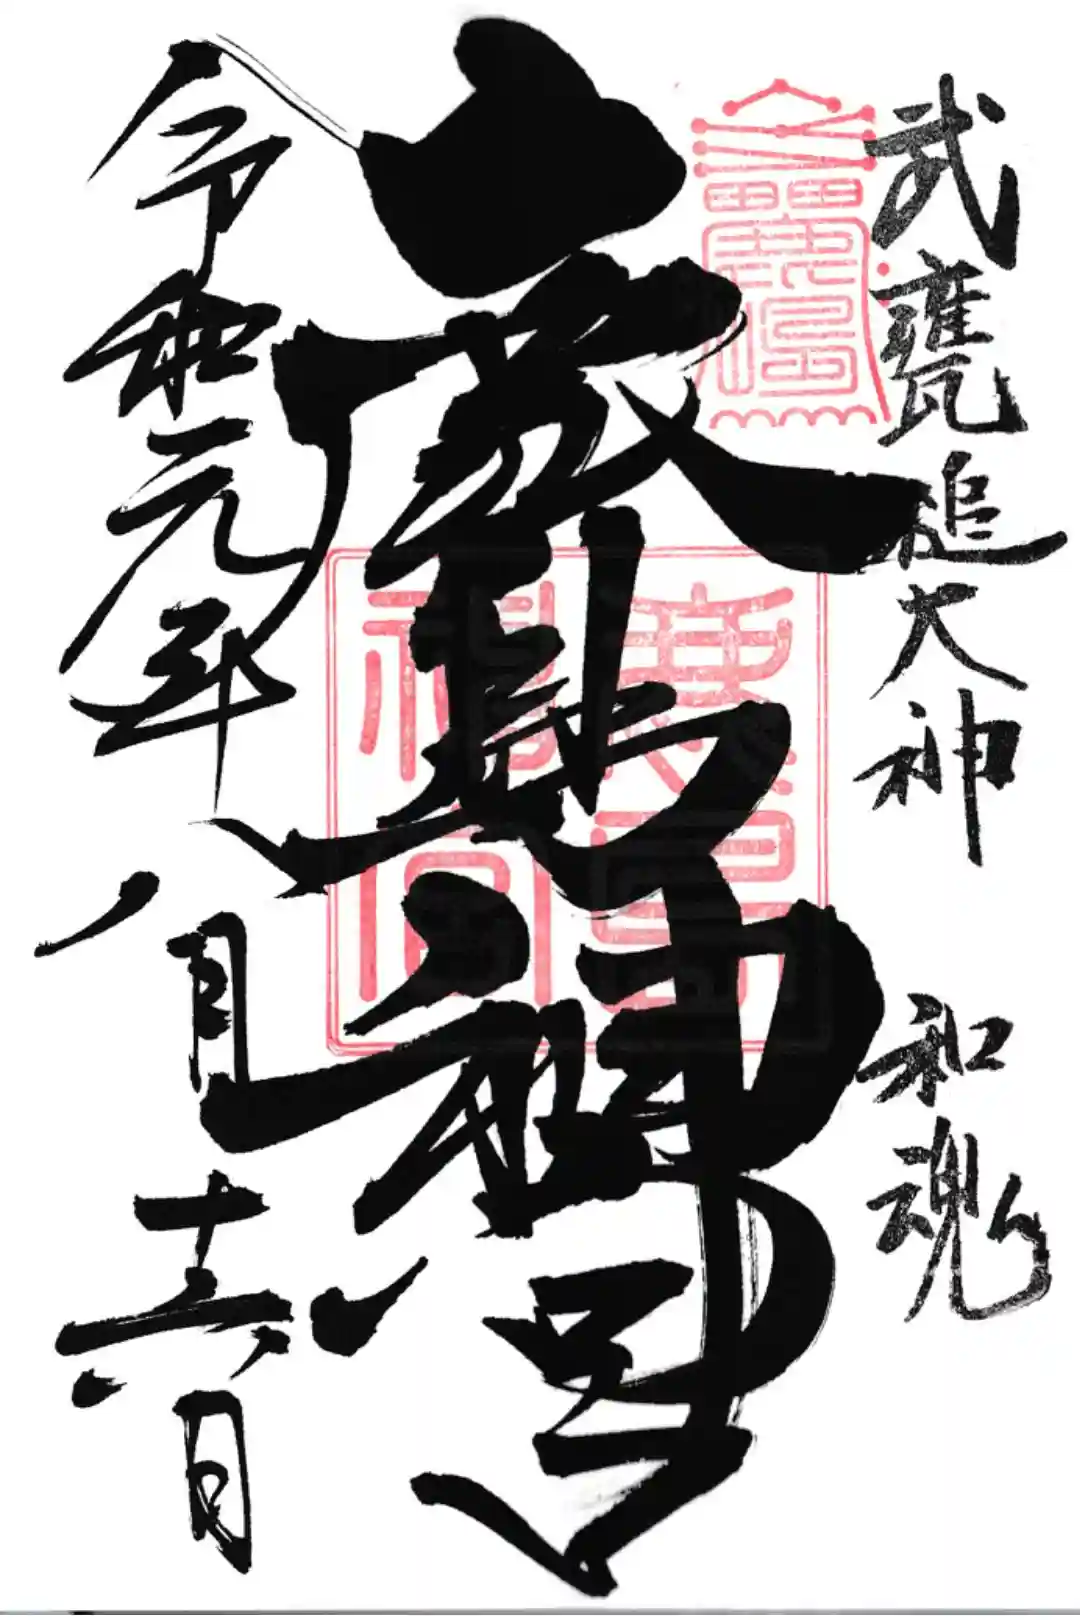 武甕槌大神 和魂
鹿島神宮
令和元年八月十六日